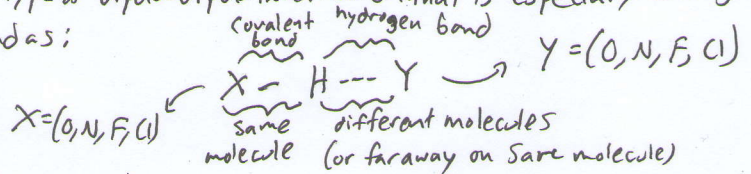 das:
covalent bond
hydrogen bond
X - H --- Y
Y = (O, N, F, Cl)
X = (O, N, F, Cl)
same molecule
different molecules
(or faraway on same molecule)